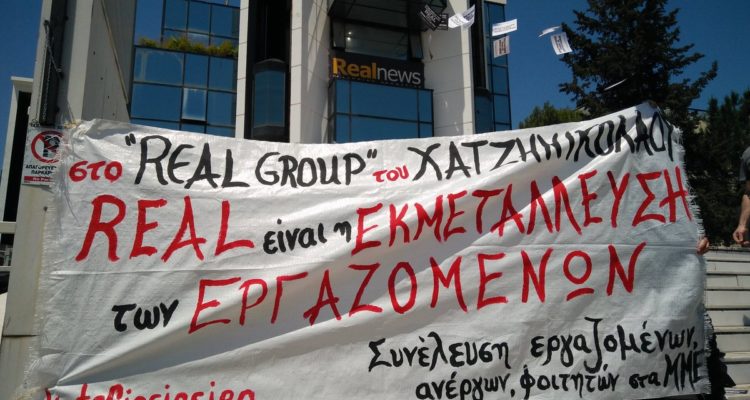 Realnews
ΑΠΑΓΟΡΕΥΕΤΑΙ
στο "REAL GROUP" του ΧΑΤΖΗΝΙΚΟΛΑΟΥ
REAL είναι η ΕΚΜΕΤΑΛΛΕΥΣΗ
των ΕΡΓΑΖΟΜΕΝΩΝ
Συνέλευση εργαζομένων,
ανέργων, φοιτητών στα ΜΜΕ